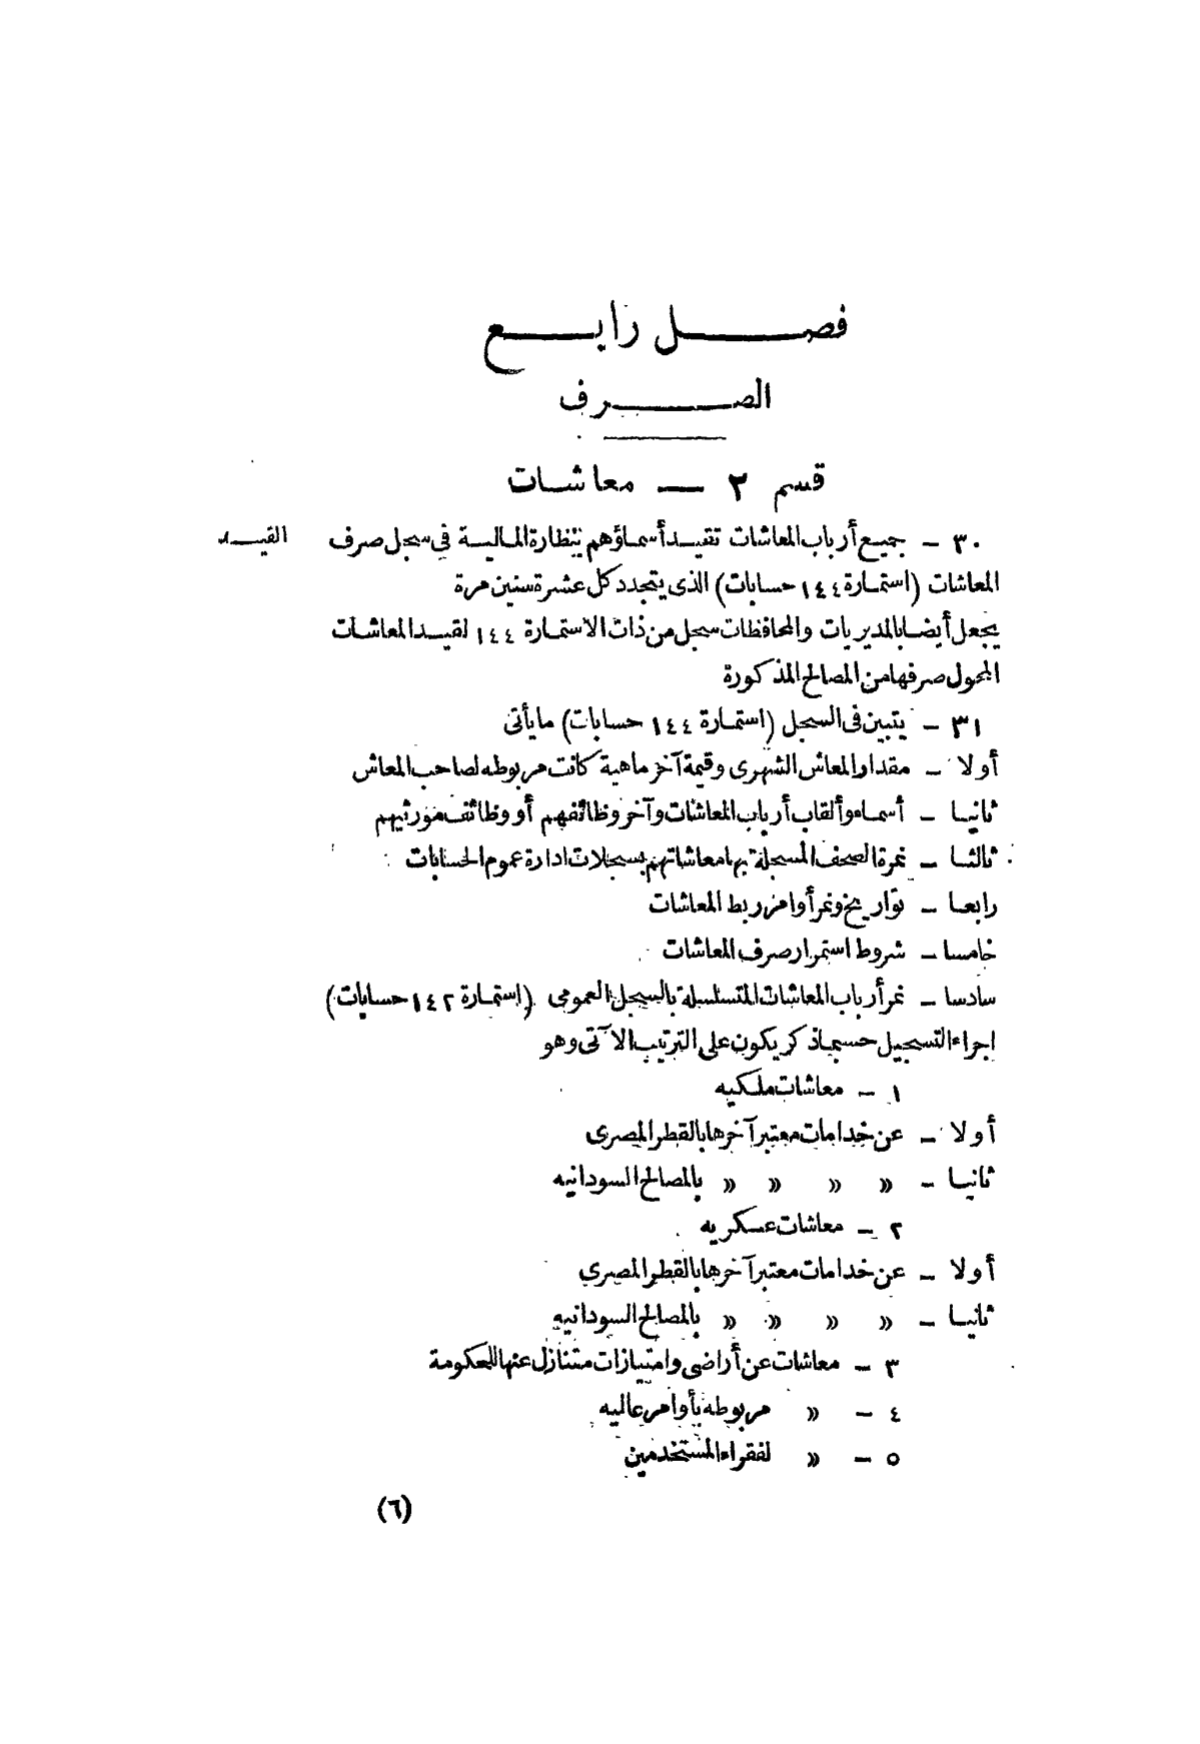 فصل رابع
الصرف
قسم ٢ — معاشات
القيد
٣٠ — جميع أرباب المعاشات تقيد أسماؤهم بنظارة المالية في سجل صرف
المعاشات (استمارة ١٤٤ حسابات) الذى يتجدد كل عشرة سنين مرة
يجعل أيضا بالمديريات والمحافظات سجل من ذات الاستمارة ١٤٤ لقيد المعاشات
المحول صرفها من المصالح المذكورة
٣١ — يتبين فى السجل (استمارة ١٤٤ حسابات) ما يأتى
أولا — مقدار المعاش الشهرى وقيمة آخر ماهية كانت مربوطه لصاحب المعاش
ثانيا — أسماء وألقاب أرباب المعاشات وآخر وظائفهم أو وظائف مورثيهم
ثالثا — نمرة الصحف المسجلة بها معاشاتهم بسجلات ادارة عموم الحسابات
رابعا — تواريخ ونمر أوامر ربط المعاشات
خامسا — شروط استمرار صرف المعاشات
سادسا — نمر أرباب المعاشات المتسلسلة بالسجل العمومى (استمارة ١٤٢ حسابات)
اجراء التسجيل حسبما ذكر يكون على الترتيب الآتى وهو
١ — معاشات ملكيه
أولا — عن خدامات معتبر آخرها بالقطر المصرى
ثانيا — » » » » بالمصالح السودانيه
٢ — معاشات عسكريه
أولا — عن خدامات معتبر آخرها بالقطر المصرى
ثانيا — » » » » بالمصالح السودانيه
٣ — معاشات عن أراضى وامتيازات متنازل عنها للحكومة
٤ — » مربوطه بأوامر عاليه
٥ — » لفقراء المستخدمين
(٦)